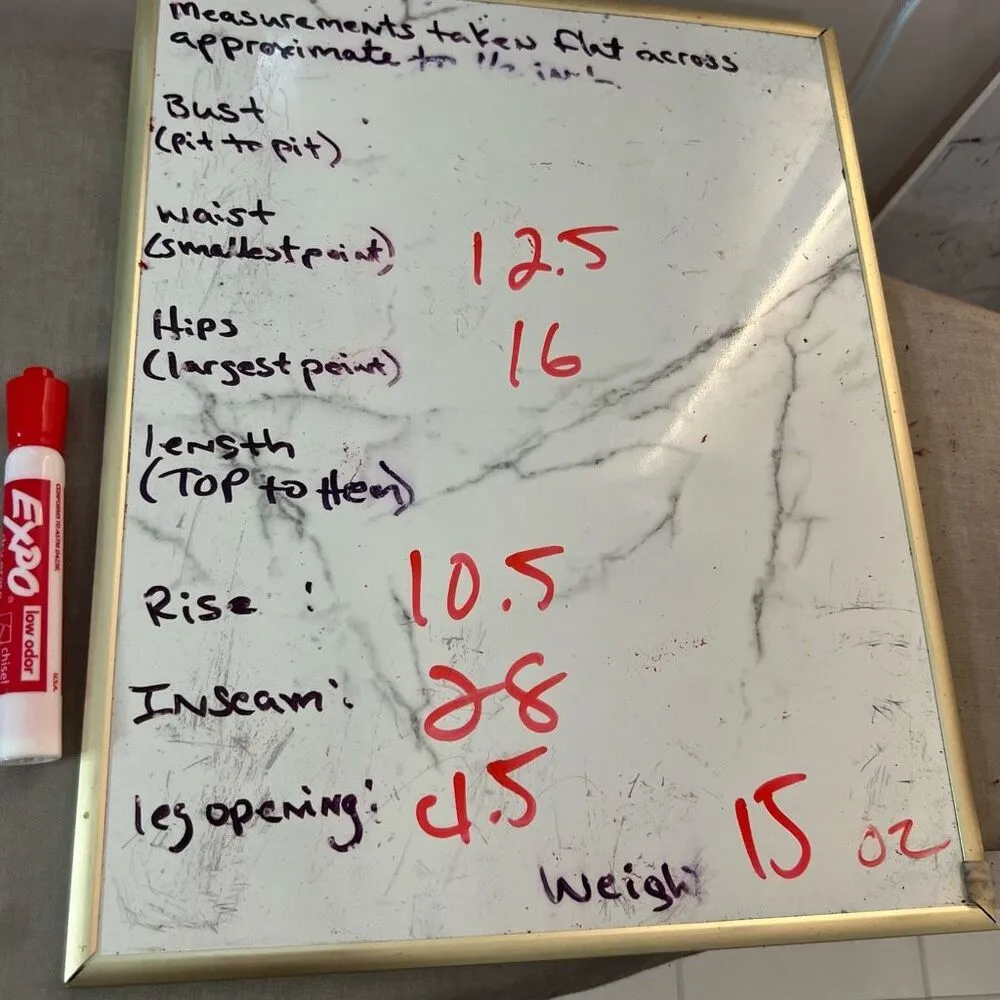 Measurements taken flat across
approximate to 1/2
Bust
(pit to pit)
waist
(smallest point) 12.5
Hips
(largest point) 16
length
(TOP to Hem)
Rise : 10.5
Inseam: 28
leg opening: 4.5
Weigh 15 oz
EXPO
low odor
chisel
U.S.A.